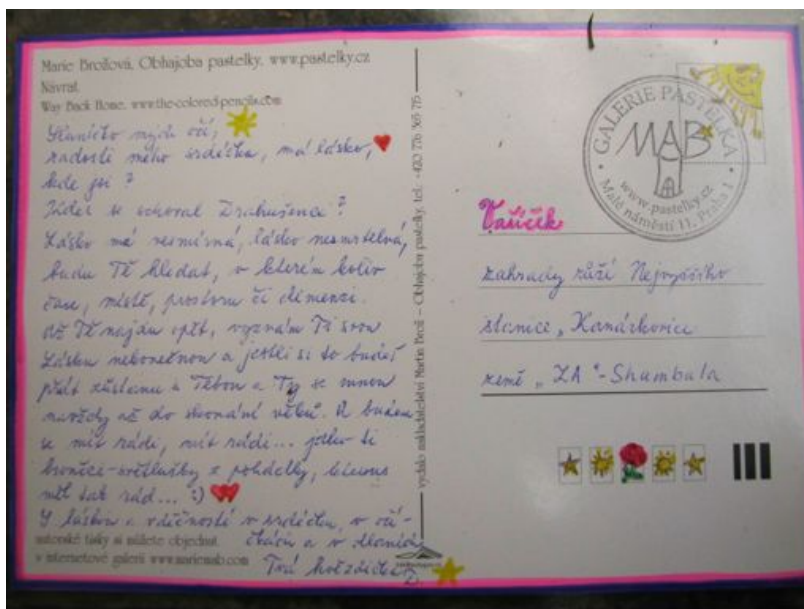 Marie Brožová, Obhajoba pastelky, www.pastelky.cz
Návrat
Way Back Home, www.the-colored-pencils.com
Sluníčko mých očí,
radosti mého srdéčka, má lásko,
kde jsi ?
Kdes se schoval Drahušence ?
Lásko má nesmírná, lásko nesmrtelná,
budu Tě hledat, v kterém koliv
čase, místě, prostoru či dimenzi.
Až Tě najdu opět, vyznám Ti svou
Lásku nekonečnou a jestli si to budeš
přát zůstanu s Tebou a Ty se mnou
navždy až do skonání věků. A budem
se mít rádi, mít rádi... jako ti
broučci-světlušky z pohádky, kterous
měl tak rád... :)
S láskou a vděčností v srdéčku, v oč-
kách a v dlaních
Tvá hvězdička
D.
autorské tisky si můžete objednat
v internetové galerii www.mariemab.com
vydalo nakladatelství Martin Brož – Obhajoba pastelky, tel.: +420 776 365 715
GALERIE PASTELKA
MAB
www.pastelky.cz
Malé náměstí 11, Praha 1
Vašíček
zahrady růží Nejvyššího
stanice „Kanárkovice
země „ZA“-Shambala